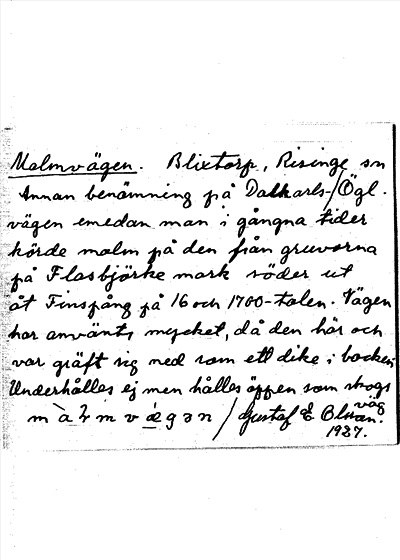 Malmvägen. Blixtorp, Risinge sn
Annan benämning på Dalkarls-/Ögl.
vägen emedan man i gångna tider
körde malm på den från gruvorna
på Flasbjörke mark söder ut
åt Finspång på 16 och 1700-talen. Vägen
har använts mycket, då den här och
var gräft sig ned som ett dike i backen
Underhålles ej men hålles öppen som skogs
väg
Gustaf E. Blman.
1927.